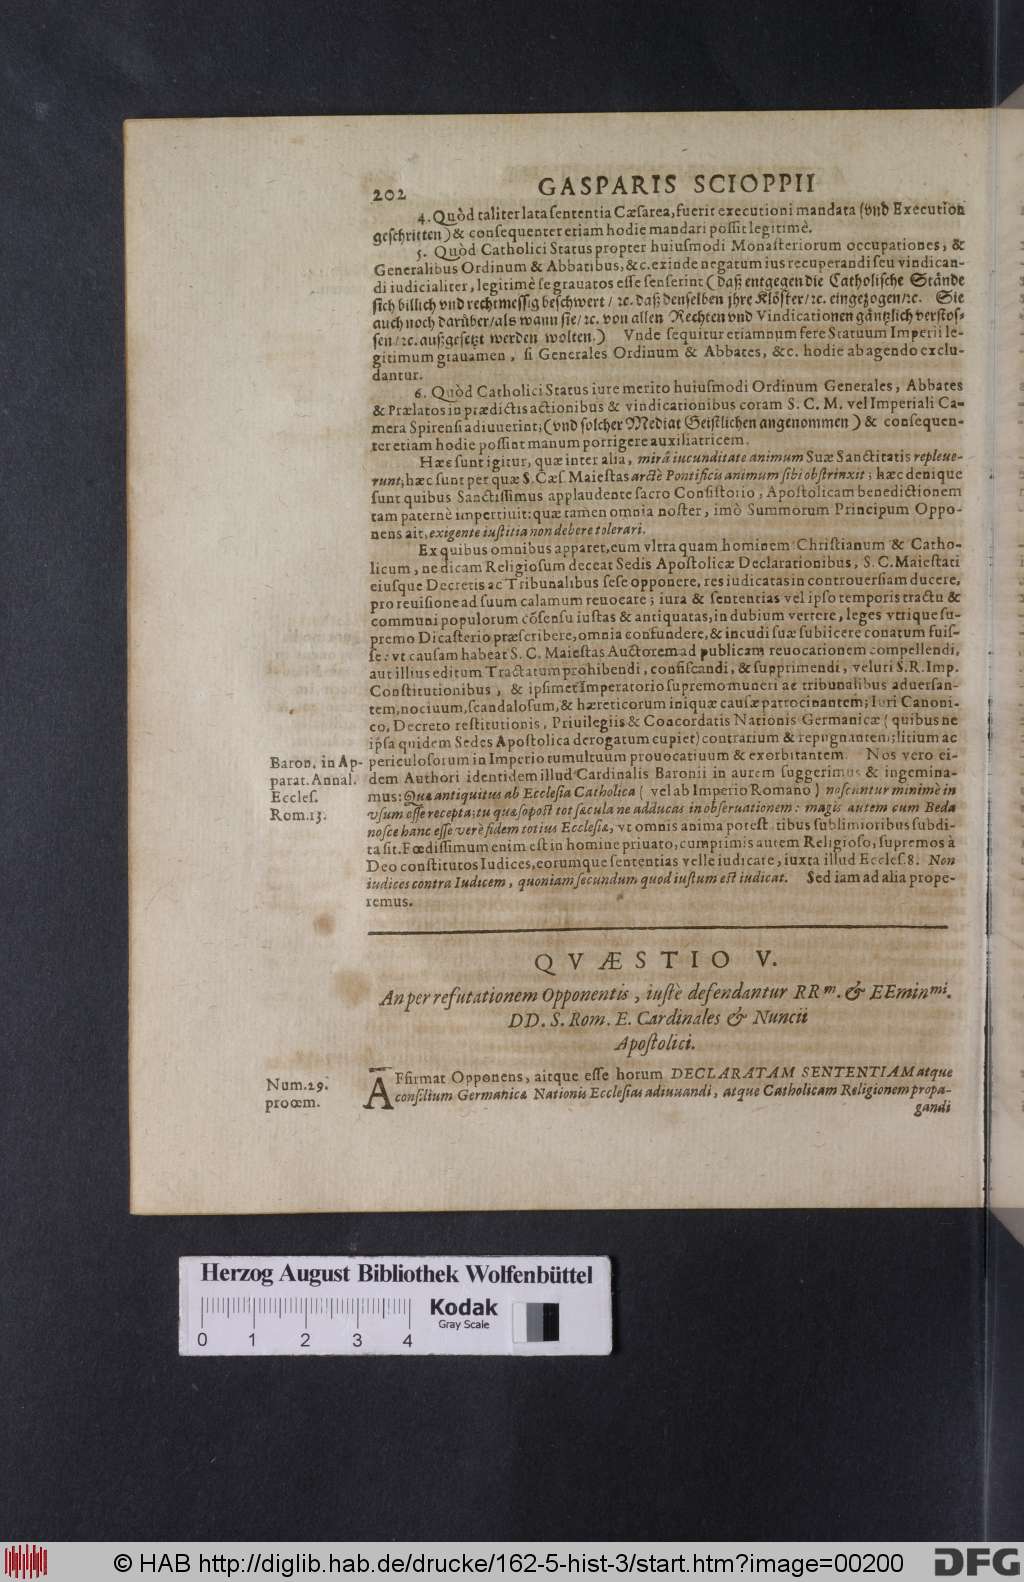 202
GASPARIS SCIOPPII
4. Quòd taliter lata sententia Cæsarea, fuerit executioni mandata (vnd Execution
geschritten) & consequenter etiam hodie mandari possit legitimè.
5. Quòd Catholici Status propter huiusmodi Monasteriorum occupationes, &
Generalibus Ordinum & Abbatibus, &c. exinde negatum ius recuperandi seu vindican-
di iudicialiter, legitimè se grauatos esse senserint (daß entgegen die Catholische Stände
sich billich vnd rechtmessig beschwert / ꝛc. daß denselben jhre Klöster/ꝛc. eingezogen/ꝛc. Sie
auch noch darüber/als wann sie/ꝛc. von allen Rechten vnd Vindicationen gäntzlich verstos-
sen/ꝛc. außgesetzt werden wolten.) Vnde sequitur etiamnum fere Statuum Imperii le-
gitimum grauamen, si Generales Ordinum & Abbates, &c. hodie ab agendo exclu-
dantur.
6. Quòd Catholici Status iure merito huiusmodi Ordinum Generales, Abbates
& Prælatos in prædictis actionibus & vindicationibus coram S. C. M. vel Imperiali Ca-
mera Spirensi adiuuerint; (vnd solcher Mediat Geistlichen angenommen) & consequen-
ter etiam hodie possint manum porrigere auxiliatricem.
Hæc sunt igitur, quæ inter alia, mirâ iucunditate animum Suæ Sanctitatis repleue-
runt; hæc sunt per quæ S. Cæs Maiestas arctè Pontificis animum sibi obstrinxit; hæc denique
sunt quibus Sanctissimus applaudente sacro Consistorio, Apostolicam benedictionem
tam paternè impertiuit: quæ tamen omnia noster, imò Summorum Principum Oppo-
nens ait, exigente iustitia non debere tolerari.
Ex quibus omnibus apparet, eum vltra quam hominem Christianum & Catho-
licum, ne dicam Religiosum deceat Sedis Apostolicæ Declarationibus, S. C. Maiestati
eiusque Decretis ac Tribunalibus sese opponere, res iudicatas in controuersiam ducere,
pro reuisione ad suum calamum reuocare; iura & sententias vel ipso temporis tractu &
communi populorum cõsensu iustas & antiquatas, in dubium vertere, leges vtrique su-
premo Dicasterio præscribere, omnia confundere, & incudi suæ subiicere conatum fuis-
se: vt causam habeat S. C. Maiestas Auctorem ad publicam reuocationem compellendi,
aut illius editum Tractatum prohibendi, confiscandi, & supprimendi, veluti S. R. Imp.
Constitutionibus, & ipsimet Imperatorio supremo muneri ac tribunalibus aduersan-
tem, nociuum, scandalosum, & hæreticorum iniquæ causæ patrocinantem; Iuri Canoni-
co, Decreto restitutionis, Priuilegiis & Concordatis Nationis Germanicæ (quibus ne
ipsa quidem Sedes Apostolica derogatum cupiet) contrarium & repugnantem; litium ac
periculosorum in Imperio tumultuum prouocatiuum & exorbitantem. Nos vero ei-
dem Authori identidem illud Cardinalis Baronii in aurem suggerimus & ingemina-
mus: Quæ antiquitus ab Ecclesia Catholica (vel ab Imperio Romano) noscuntur minimè in
vsum esse recepta; tu quæso post tot sæcula ne adducas in obseruationem: magis autem cum Beda
nosce hanc esse verè fidem totius Ecclesiæ, vt omnis anima potestatibus sublimioribus subdi-
ta sit. Fœdissimum enim est in homine priuato, cumprimis autem Religioso, supremos à
Deo constitutos Iudices, eorumque sententias velle iudicare, iuxta illud Eccles. 8. Non
iudices contra Iudicem, quoniam secundum quod iustum est iudicat. Sed iam ad alia prope-
remus.
Baron. in Ap-
parat. Annal.
Eccles.
Rom. 13.
QVÆSTIO V.
An per refutationem Opponentis, iustè defendantur RRm. & EEminmi.
DD. S. Rom. E. Cardinales & Nuncii
Apostolici.
Num. 29.
proœm.
AFfirmat Opponens, aitque esse horum DECLARATAM SENTENTIAM atque
consilium Germanicæ Nationis Ecclesias adiuuandi, atque Catholicam Religionem propa-
gandi
Herzog August Bibliothek Wolfenbüttel
0 1 2 3 4
Kodak
Gray Scale
© HAB http://diglib.hab.de/drucke/162-5-hist-3/start.htm?image=00200
DFG